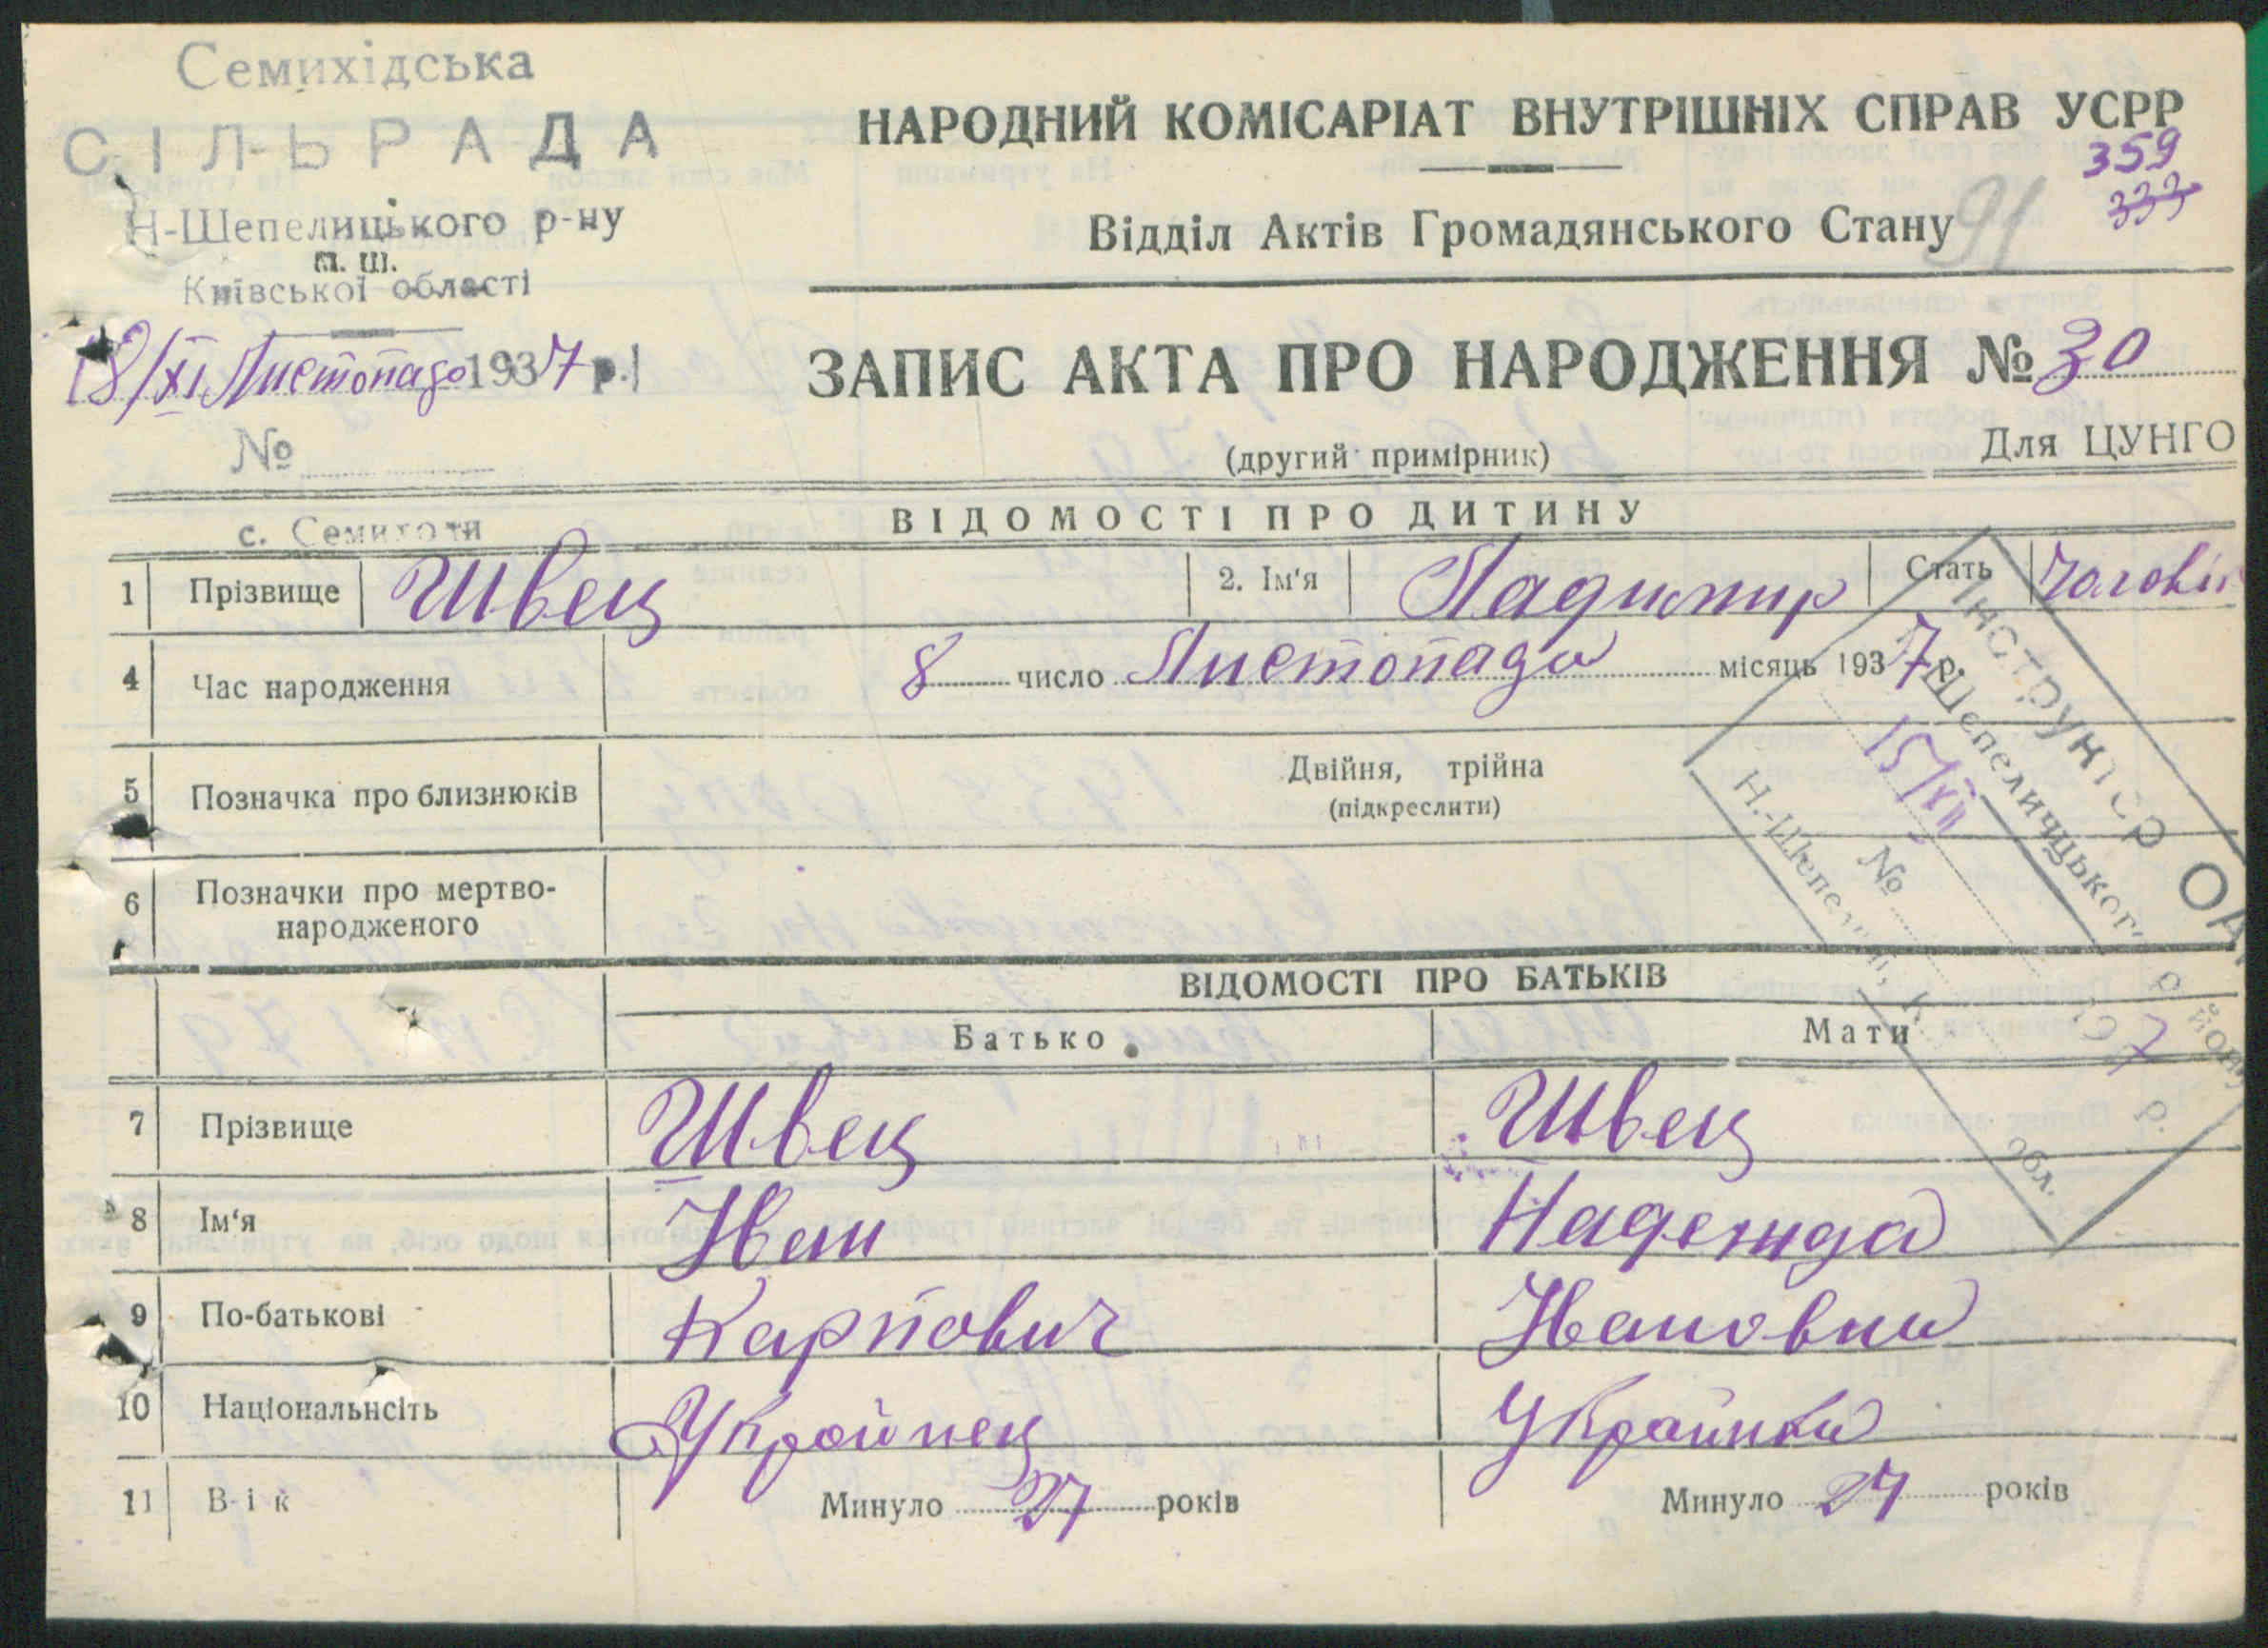 Семихідська
СІЛЬРАДА
Н-Шепелицького р-ну
п. ш.
Київської області
18/XI Листопада 1937 р.
№
НАРОДНИЙ КОМІСАРІАТ ВНУТРІШНІХ СПРАВ УСРР
359
333
Відділ Актів Громадянського Стану
91
ЗАПИС АКТА ПРО НАРОДЖЕННЯ № 30
(другий примірник)
Для ЦУНГО
с. Семиходи
ВІДОМОСТІ ПРО ДИТИНУ
1 Прізвище Швец 2. Ім'я Ладимир Стать Чолові
4 Час народження 8 число Листопада місяць 1937 р.
5 Позначка про близнюків Двійня, трійна
(підкреслити)
6 Позначки про мертво-
народженого
Інструктор ОА
Н-Шепелицького району
15/XII 1937 р.
№
Н.-Шепеличі, К. обл.
ВІДОМОСТІ ПРО БАТЬКІВ
Батько Мати
7 Прізвище Швец Швец
8 Ім'я Иван Надежда
9 По-батькові Карпович Ивановна
10 Національнсіть Украйнец Украинка
11 Вік Минуло 27 років Минуло 27 років